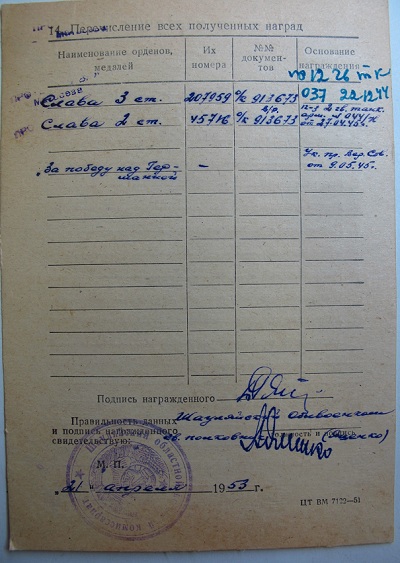 14. Перечисление всех полученных наград
Наименование орденов, медалей
Их номера
№№ документов
Основание награждения
Слава 3 ст. 207959 о/к 913673 по 12 26 тк
037 22.12.44
Слава 2 ст. 45716 о/к 913673 п-з 2 гв. танк.
б/р. арм. № 044/н
от 27.04.45г.
"За победу над Гер- – Ук. пр. Вер. Сов.
манией от 9.05.45г.
Подпись награжденного
Правильность данных
и подпись награжденного
свидетельствую:
Шауляйский облвоенком
гв. полковник
М. П.
"21" апреля 1953 г.
ЦТ ВМ 7122—51